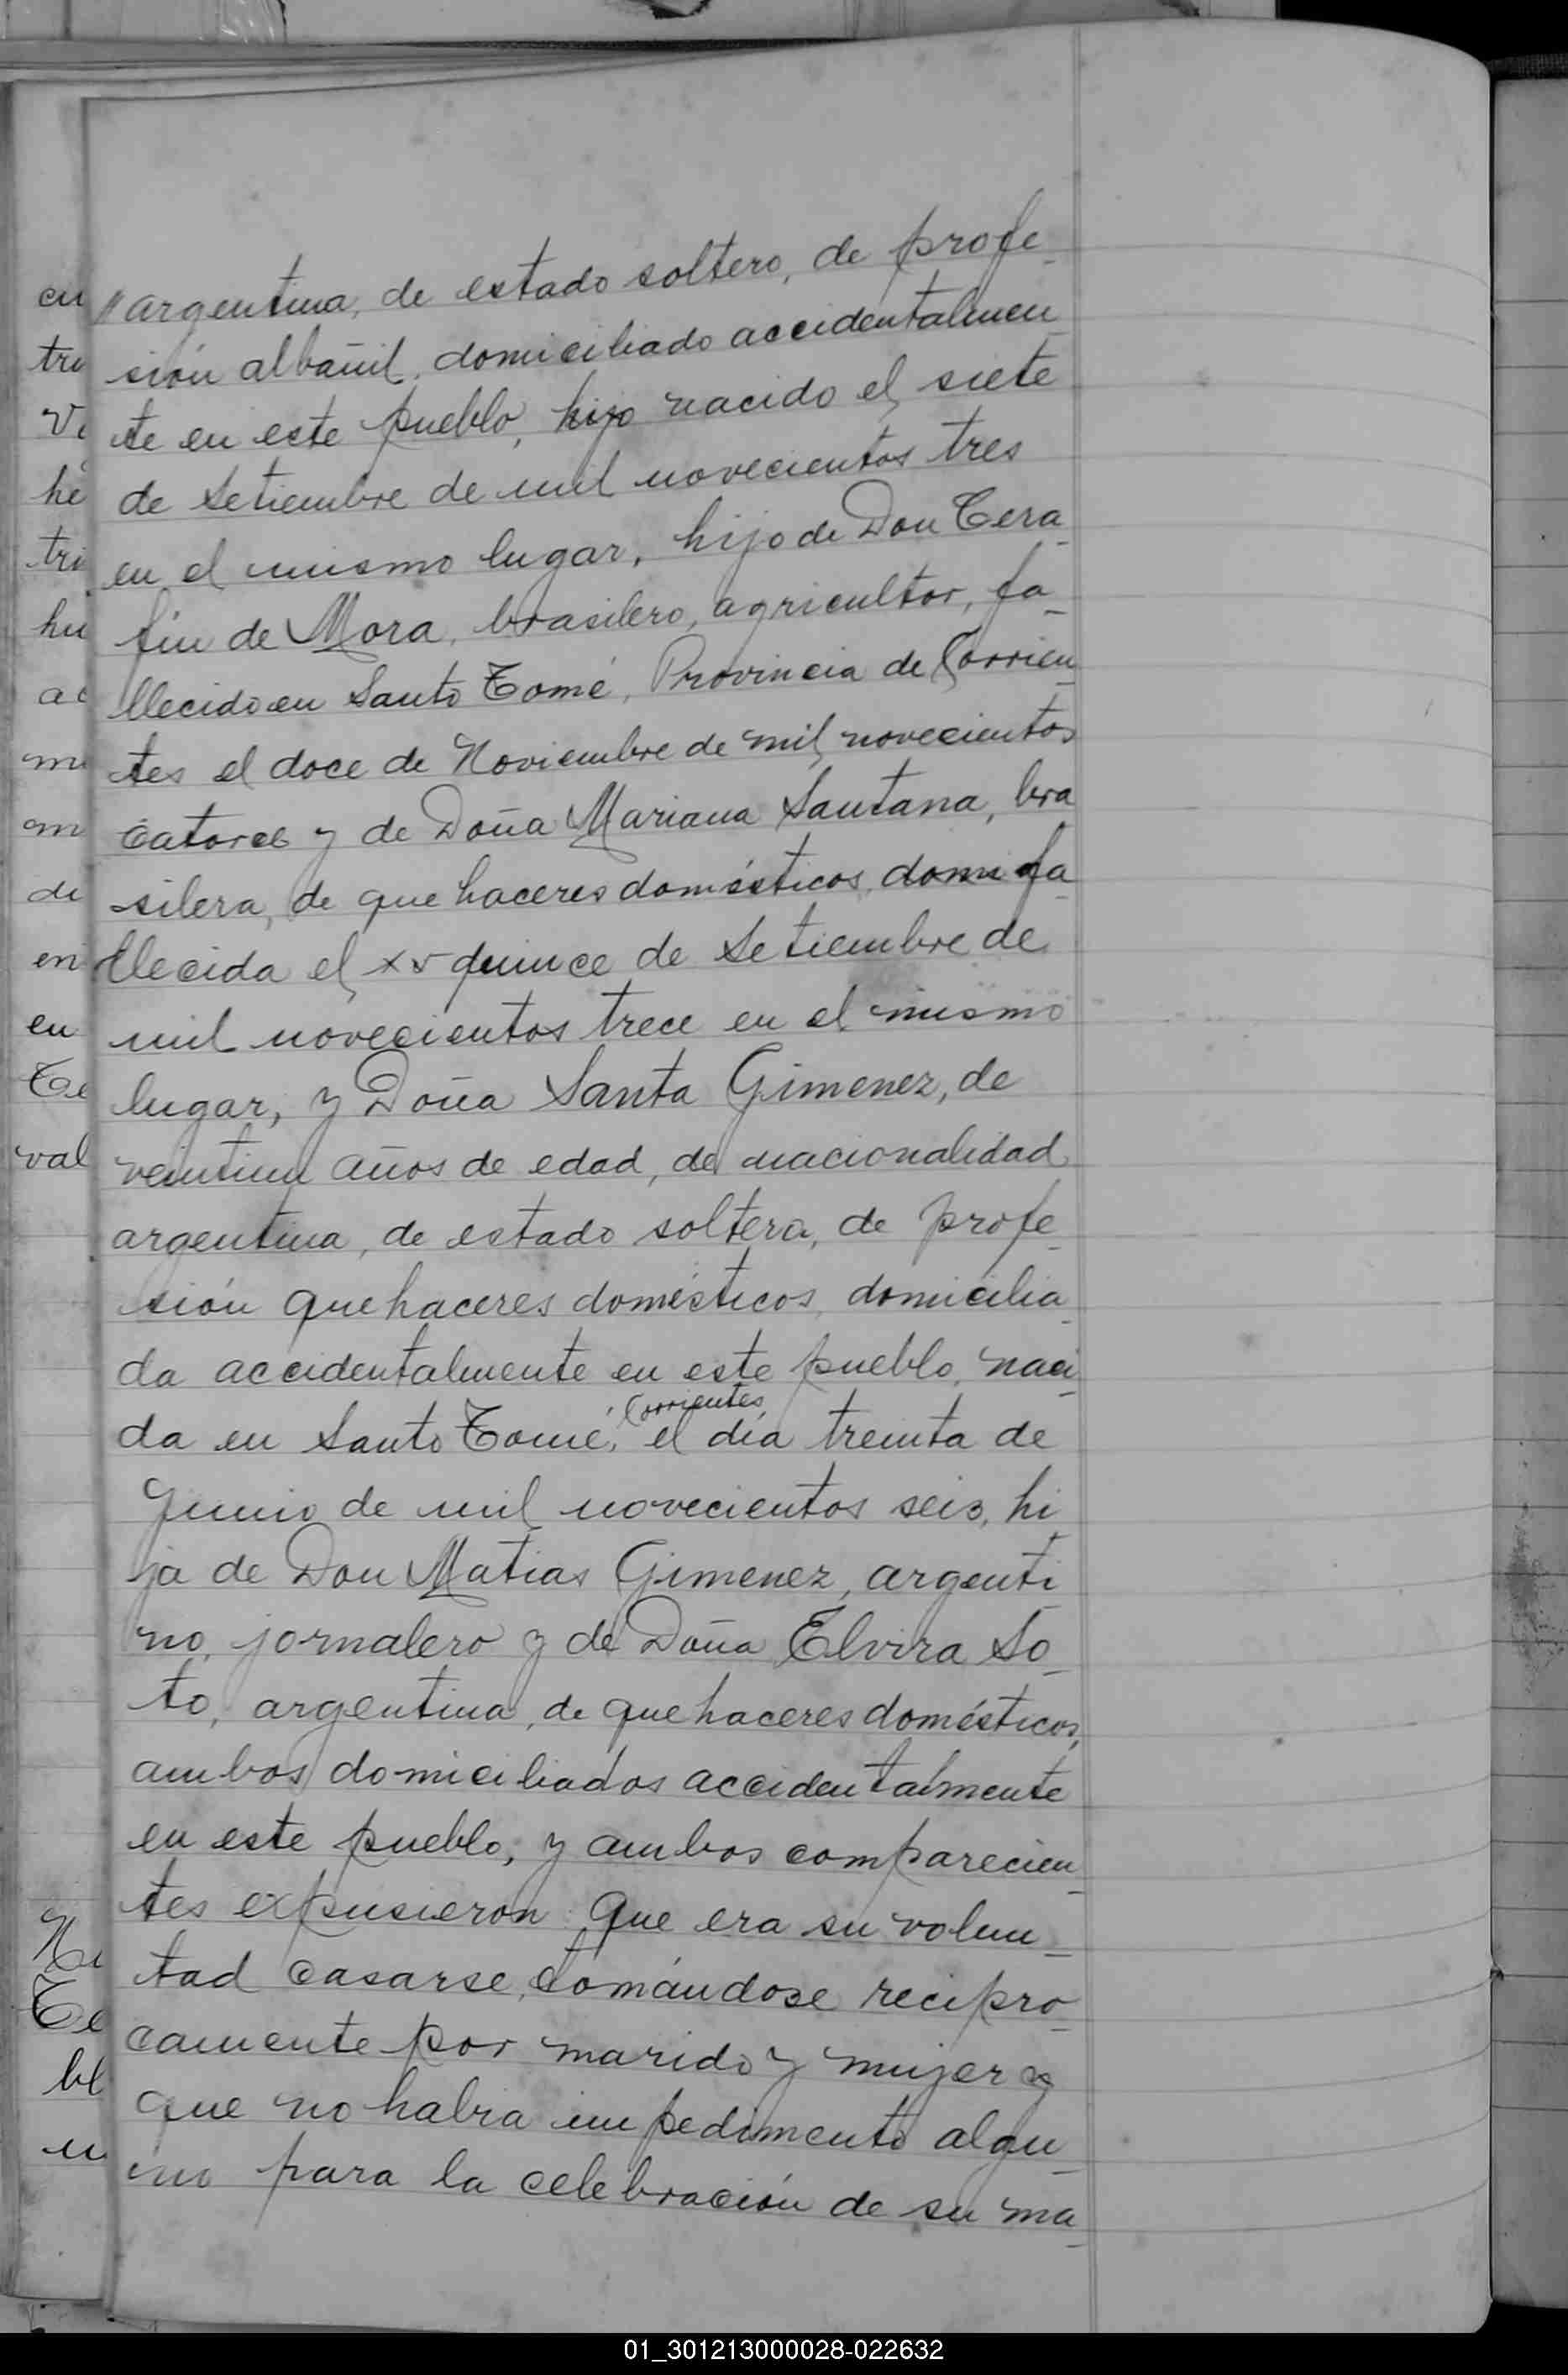 cu
tri
Vi
he
tri
hu
ac
mi
om
di
en
en
Ce
val
Ce
bl
u
"argentina, de estado soltero, de profe-
sión albañil, domiciliado accidentalmen-
te en este pueblo, hijo nacido el siete
de Setiembre de mil novecientos tres
en el mismo lugar, hijo de Don Cera-
fin de Mora, brasilero, agricultor, fa-
llecido en Santo Tomé, Provincia de Corrien-
tes el doce de Noviembre de mil novecientos
catorce y de Doña Mariana Santana, bra-
silera, de que haceres domésticos, domi fa-
llecida el xv quince de Setiembre de
mil novecientos trece en el mismo
lugar, y Doña Santa Gimenez, de
veintiun años de edad, de nacionalidad
argentina, de estado soltera, de profe-
sión que haceres domésticos, domicilia-
da accidentalmente en este pueblo, naci-
Corrientes,
da en Santo Tomé, el día treinta de
Junio de mil novecientos seis, hi-
ja de Don Matias Gimenez, argenti-
no, jornalero y de Doña Elvira So-
to, argentina, de que haceres domésticos,
ambos domiciliados accidentalmente
en este pueblo, y ambos comparecien-
tes expusieron: Que era su volun-
tad casarse, tomándose recipro-
camente por marido y mujer y
que no habia impedimento algu-
no para la celebración de su ma-
01_301213000028-022632